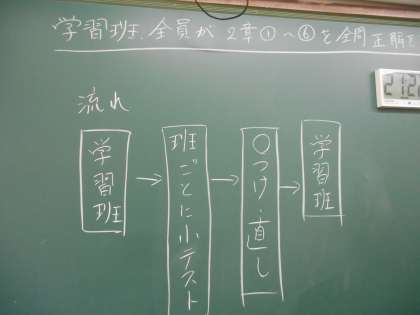 学習班、全員が 2章①〜⑥を全問正解を
流れ
学習班
→
班ごとに小テスト
→
○つけ・直し
→
学習班